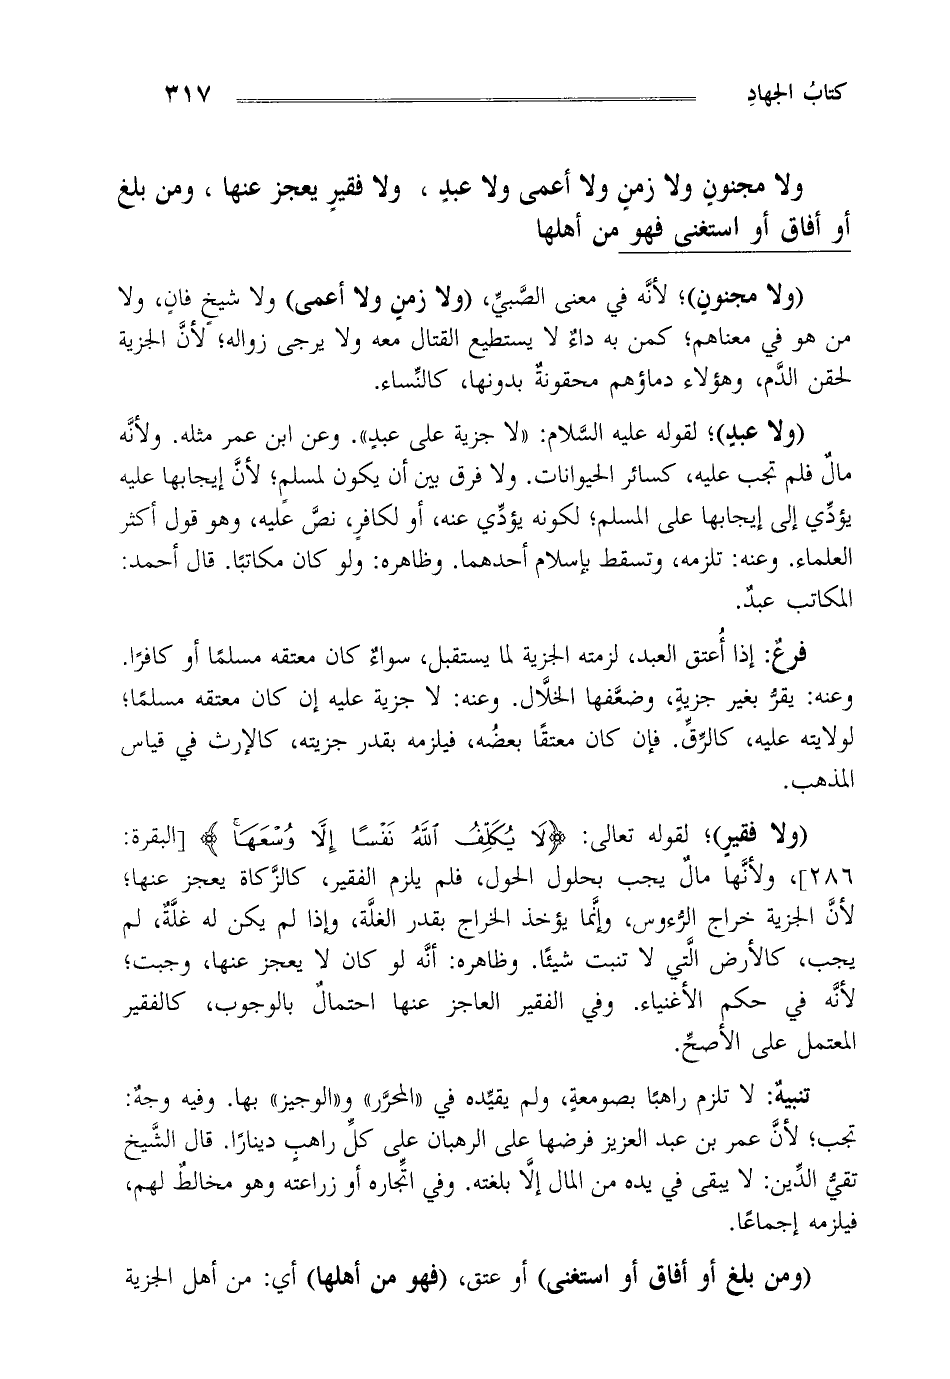 كتابُ الجهادِ ٣١٧
ولا مجنونٍ ولا زمنٍ ولا أعمى ولا عبدٍ ، ولا فقيرٍ يعجز عنها ، ومن بلغ
أو أفاق أو استغنى فهو من أهلها
(ولا مجنونٍ)؛ لأنَّه في معنى الصَّبيِّ، (ولا زمنٍ ولا أعمى) ولا شيخٍ فانٍ، ولا
من هو في معناهم؛ كمن به داءٌ لا يستطيع القتال معه ولا يرجى زواله؛ لأنَّ الجزية
لحقن الدَّم، وهؤلاء دماؤهم محقونةٌ بدونها، كالنِّساء.
(ولا عبدٍ)؛ لقوله عليه السَّلام: «لا جزية على عبدٍ». وعن ابن عمر مثله. ولأنَّه
مالٌ فلم تجب عليه، كسائر الحيوانات. ولا فرق بين أن يكون لمسلمٍ؛ لأنَّ إيجابها عليه
يؤدِّي إلى إيجابها على المسلم؛ لكونه يؤدِّي عنه، أو لكافرٍ، نصَّ عليه، وهو قول أكثر
العلماء. وعنه: تلزمه، وتسقط بإسلام أحدهما. وظاهره: ولو كان مكاتبًا. قال أحمد:
المكاتب عبدٌ.
فرعٌ: إذا أُعتق العبد، لزمته الجزية لما يستقبل، سواءٌ كان معتقه مسلمًا أو كافرًا.
وعنه: يقرُّ بغير جزيةٍ، وضعَّفها الخلَّال. وعنه: لا جزية عليه إن كان معتقه مسلمًا؛
لولايته عليه، كالرِّقِّ. فإن كان معتقًا بعضُه، فيلزمه بقدر جزيته، كالإرث في قياس
المذهب.
(ولا فقيرٍ)؛ لقوله تعالى: ﴿لَا يُكَلِّفُ ٱللَّهُ نَفْسًا إِلَّا وُسْعَهَاۚ﴾ [البقرة:
٢٨٦]، ولأنَّها مالٌ يجب بحلول الحول، فلم يلزم الفقير، كالزَّكاة يعجز عنها؛
لأنَّ الجزية خراج الرُّءوس، وإنَّما يؤخذ الخراج بقدر الغلَّة، وإذا لم يكن له غلَّةٌ، لم
يجب، كالأرض الَّتي لا تنبت شيئًا. وظاهره: أنَّه لو كان لا يعجز عنها، وجبت؛
لأنَّه في حكم الأغنياء. وفي الفقير العاجز عنها احتمالٌ بالوجوب، كالفقير
المعتمل على الأصحِّ.
تنبيهٌ: لا تلزم راهبًا بصومعةٍ، ولم يقيِّده في «المحرَّر» و«الوجيز» بها. وفيه وجهٌ:
تجب؛ لأنَّ عمر بن عبد العزيز فرضها على الرهبان على كلِّ راهبٍ دينارًا. قال الشَّيخ
تقيُّ الدِّين: لا يبقى في يده من المال إلَّا بلغته. وفي اتِّجاره أو زراعته وهو مخالطٌ لهم،
فيلزمه إجماعًا.
(ومن بلغ أو أفاق أو استغنى) أو عتق، (فهو من أهلها) أي: من أهل الجزية